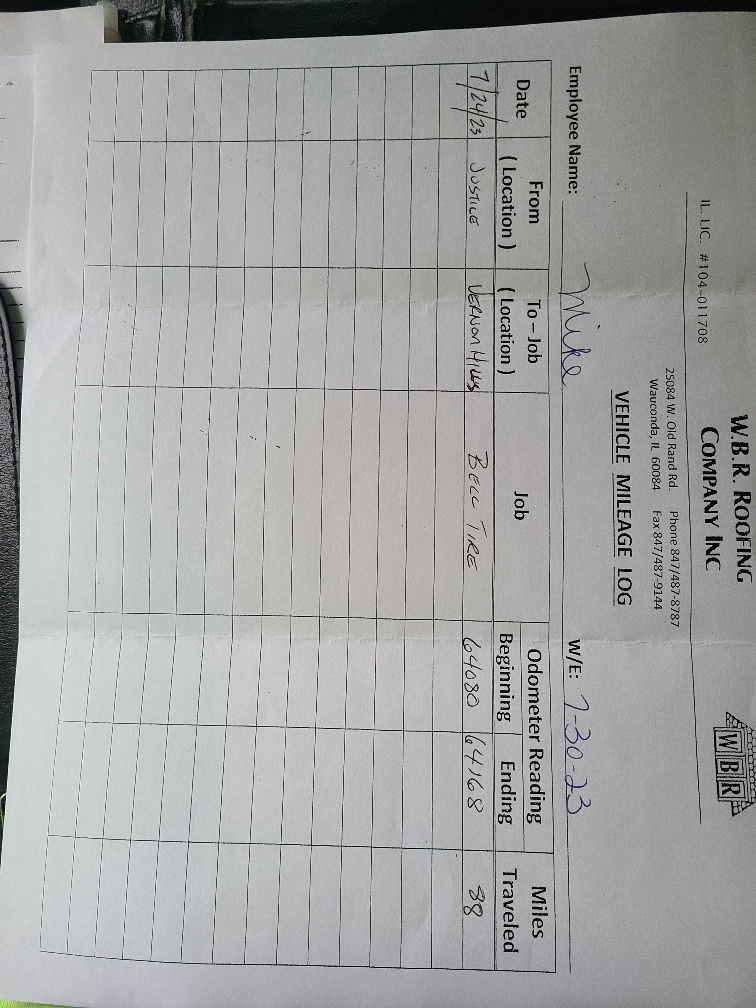 W.B.R. ROOFING
COMPANY INC
WBR
IL. LIC. #104-011708
25084 W. Old Rand Rd. Phone 847/487-8787
Wauconda, IL 60084 Fax 847/487-9144
VEHICLE MILEAGE LOG
Employee Name: Mike W/E: 7-30-23
Date From To – Job Job Odometer Reading Miles
( Location ) ( Location ) Beginning Ending Traveled
7/24/23 JUSTICE VERNON HILLS BELL TIRE 64080 64168 88